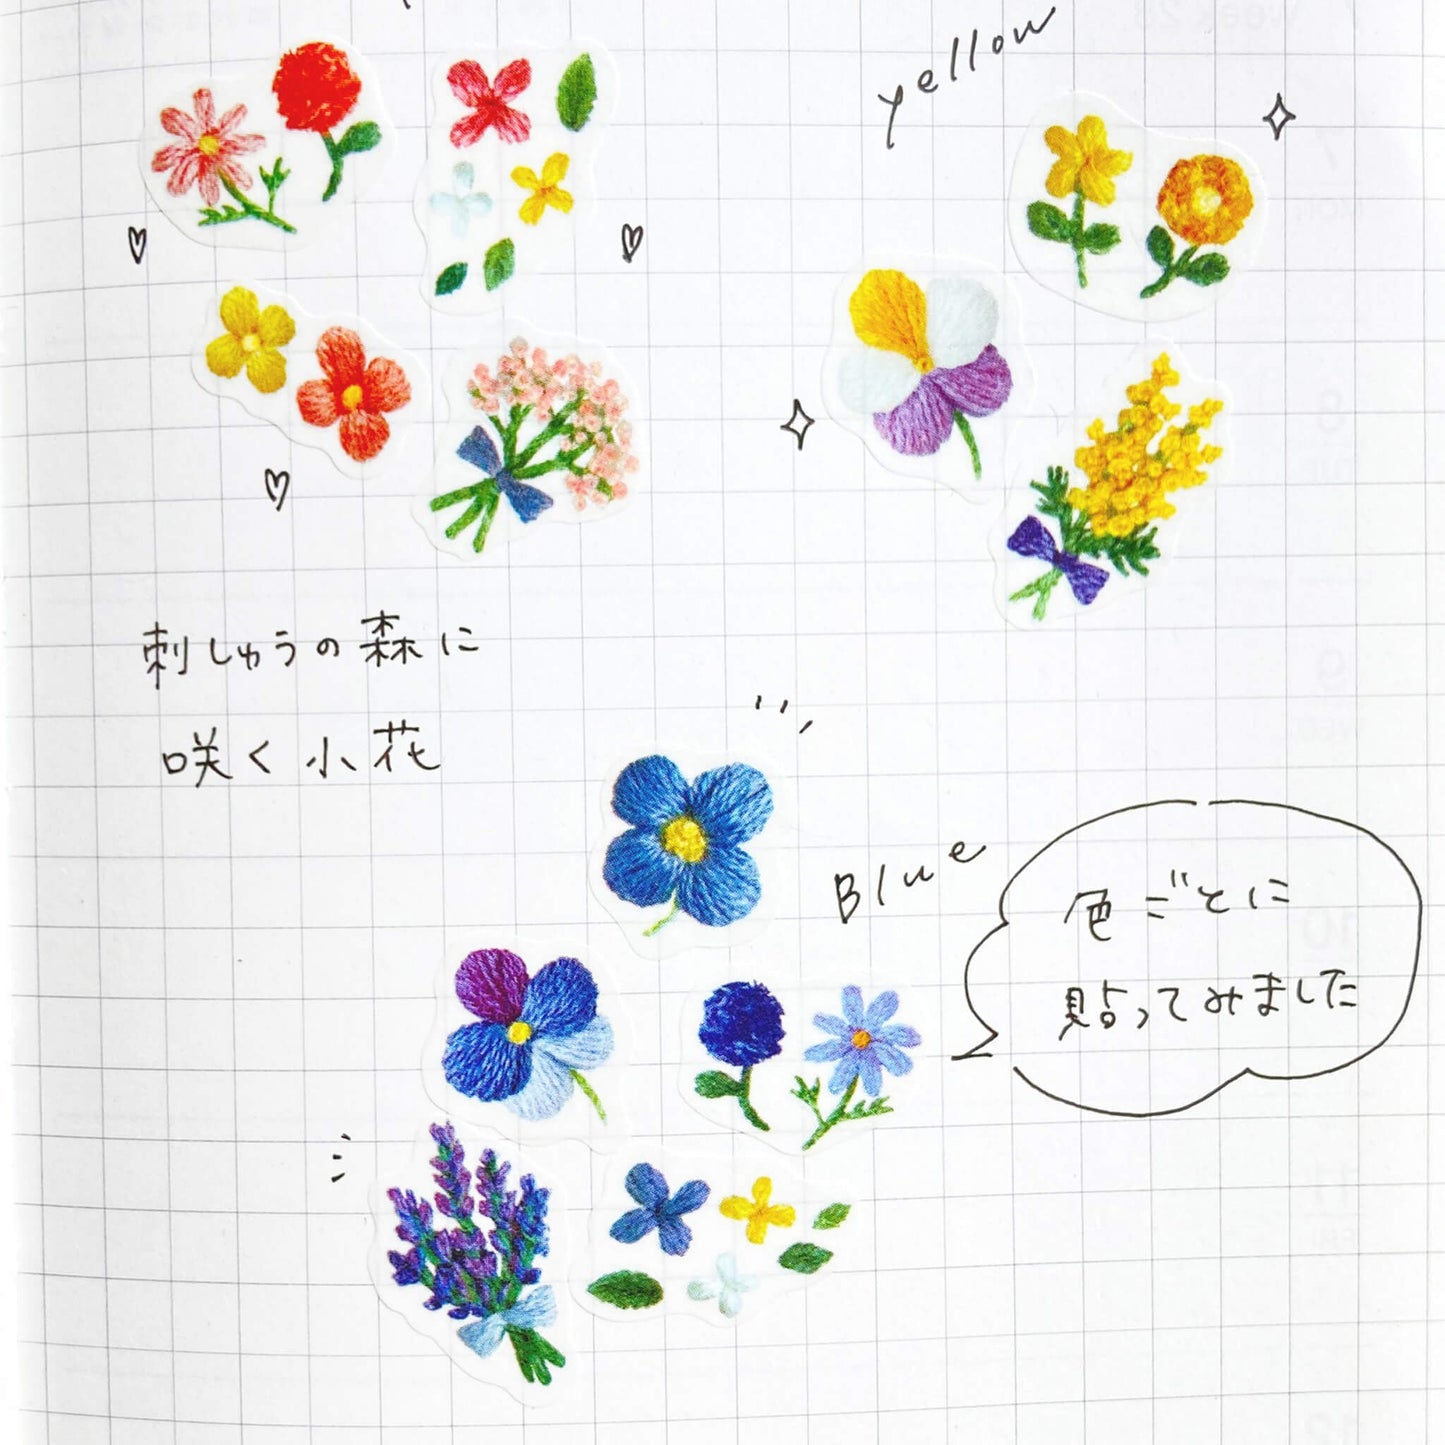 yellow
刺しゅうの森に
咲く小花
Blue
色ごとに
貼ってみました